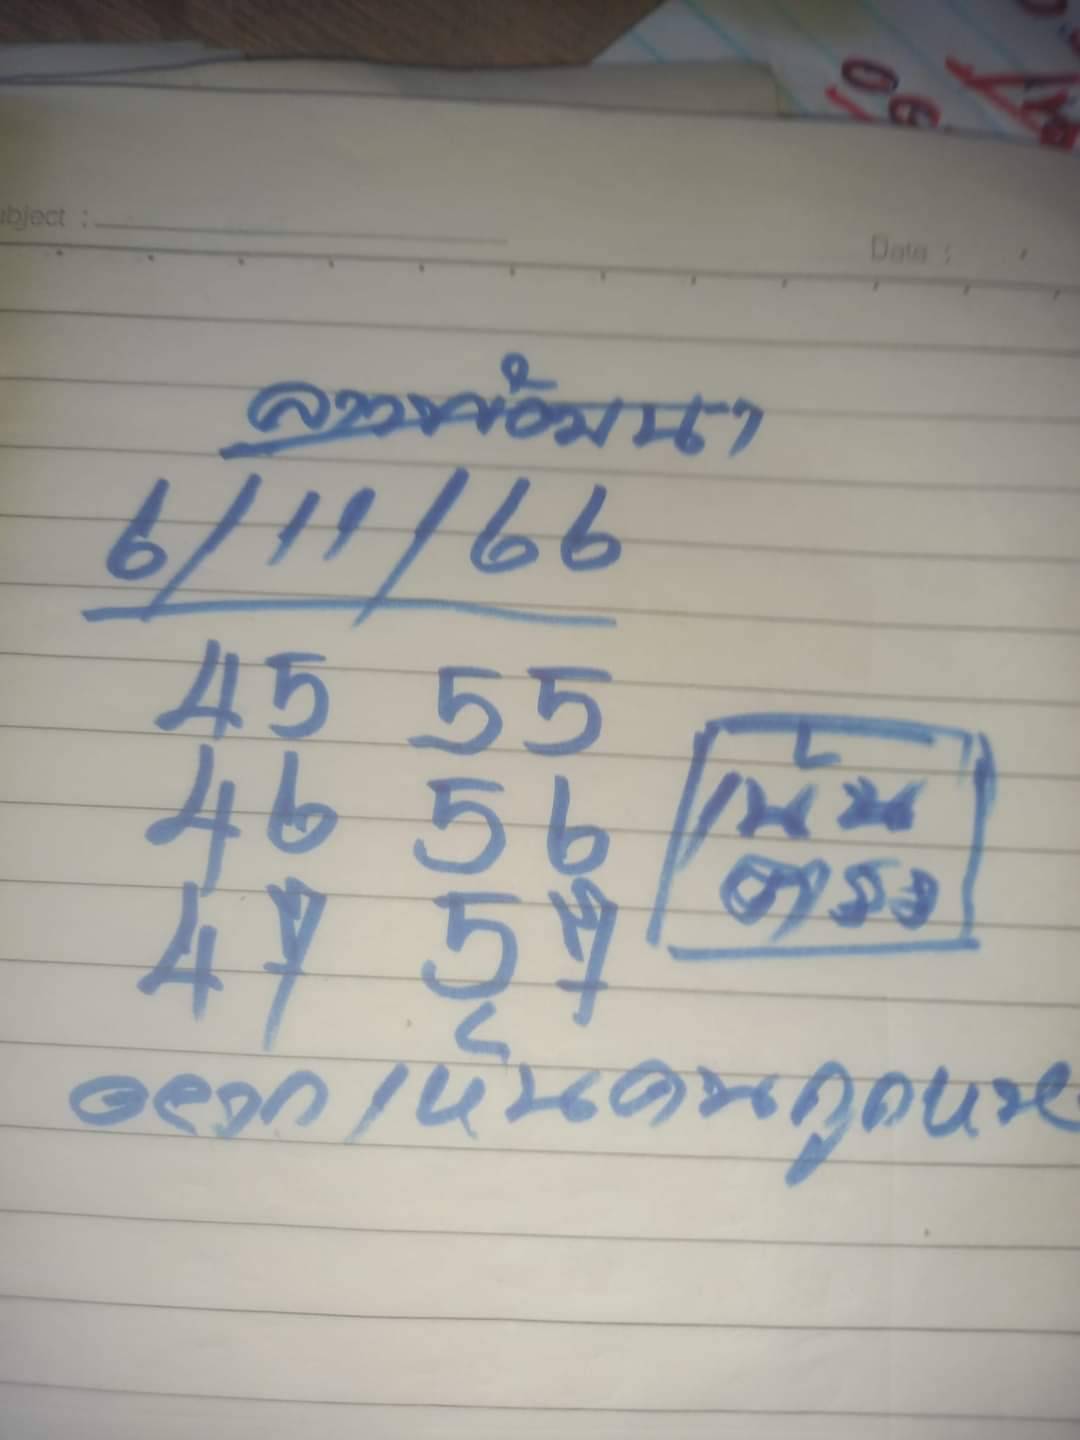 ubject :
Date :
ลาวหย้อมนา
6/11/66
45 55
46 56
47 57
เน้น
ตรง
อยากเห็นคนถูกหวย